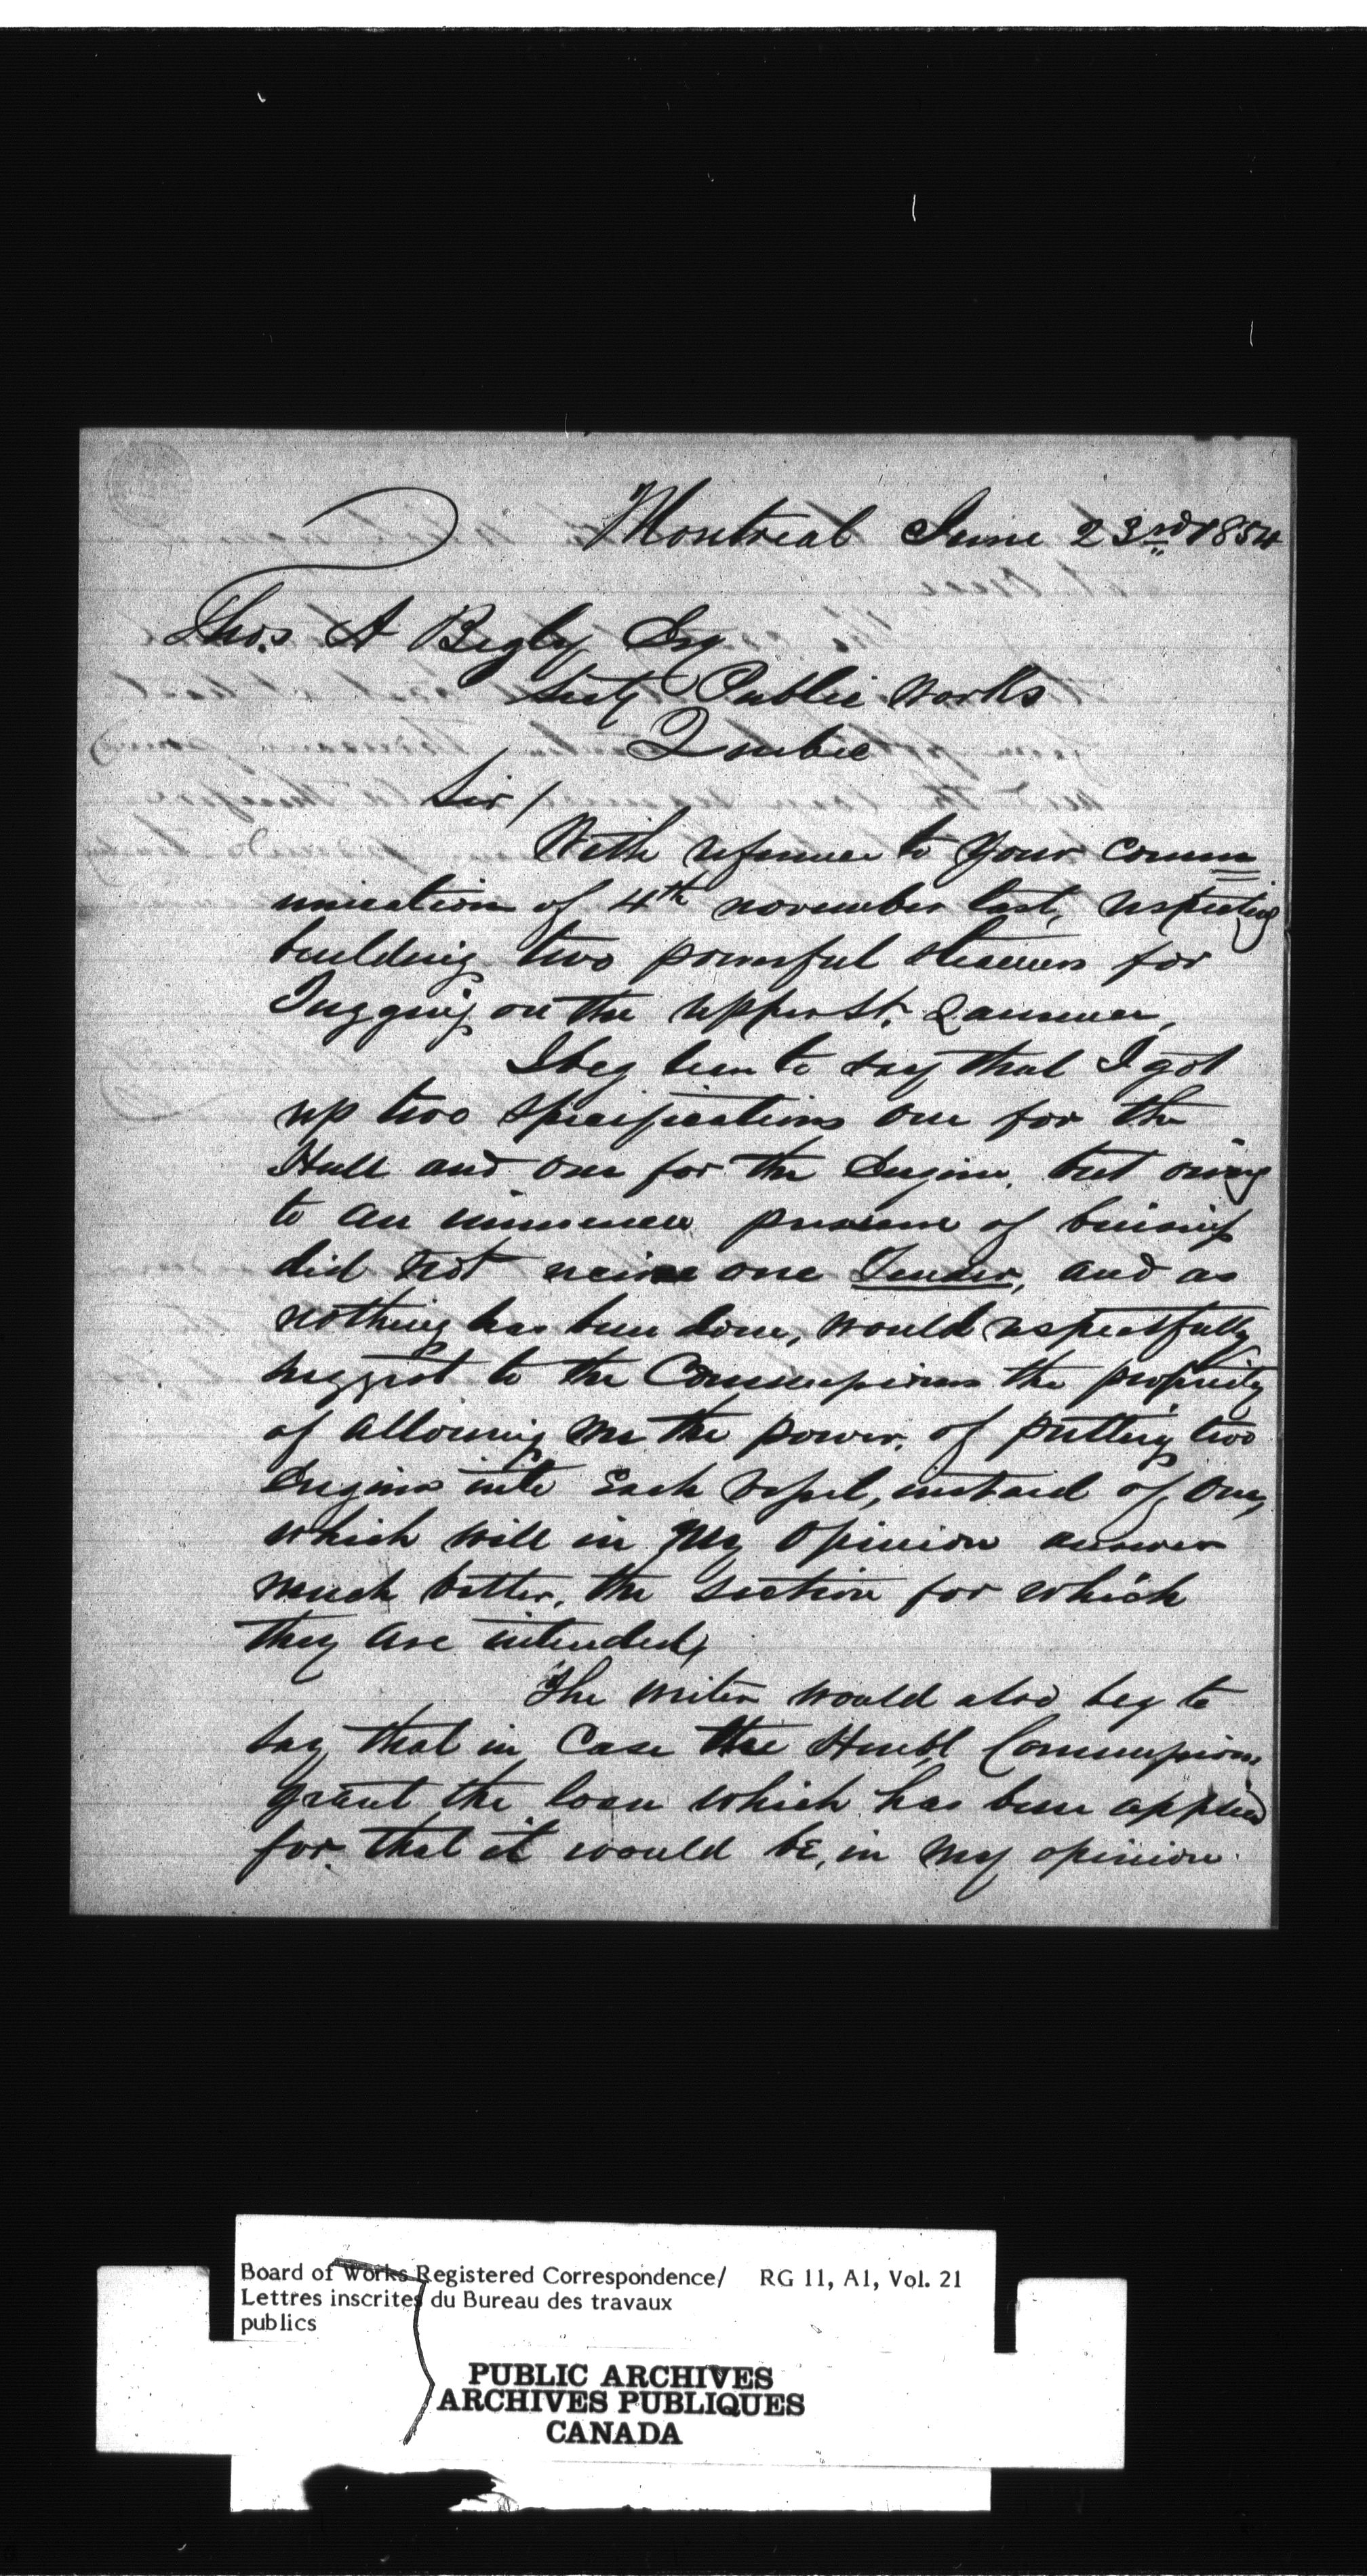 Montreal June 23rd 1854
Thos. A Begly Esq
Secty Public Works
Quebec
Sir /
With reference to your comm
unication of 4th november last, respecting
building two powerful steamers for
Tugging on the upper St. Lawrence,
I beg leave to say that I got
up two specifications one for the
Hull and one for the Engine, but owing
to an immense pressure of business
did not receive one Tender, and as
nothing has been done, would respectfully
suggest to the Commissioners the propriety
of allowing me the power, of putting two
Engines into Each vessel, instead of one,
which will in my opinion answer
much better, the section for which
they are intended,
The writer would also beg to
say that in Case the Honbl Commissioners
grant the loan which has been applied
for that it would be, in my opinion
Board of Works Registered Correspondence/ RG 11, A1, Vol. 21
Lettres inscrites du Bureau des travaux
publics
PUBLIC ARCHIVES
ARCHIVES PUBLIQUES
CANADA